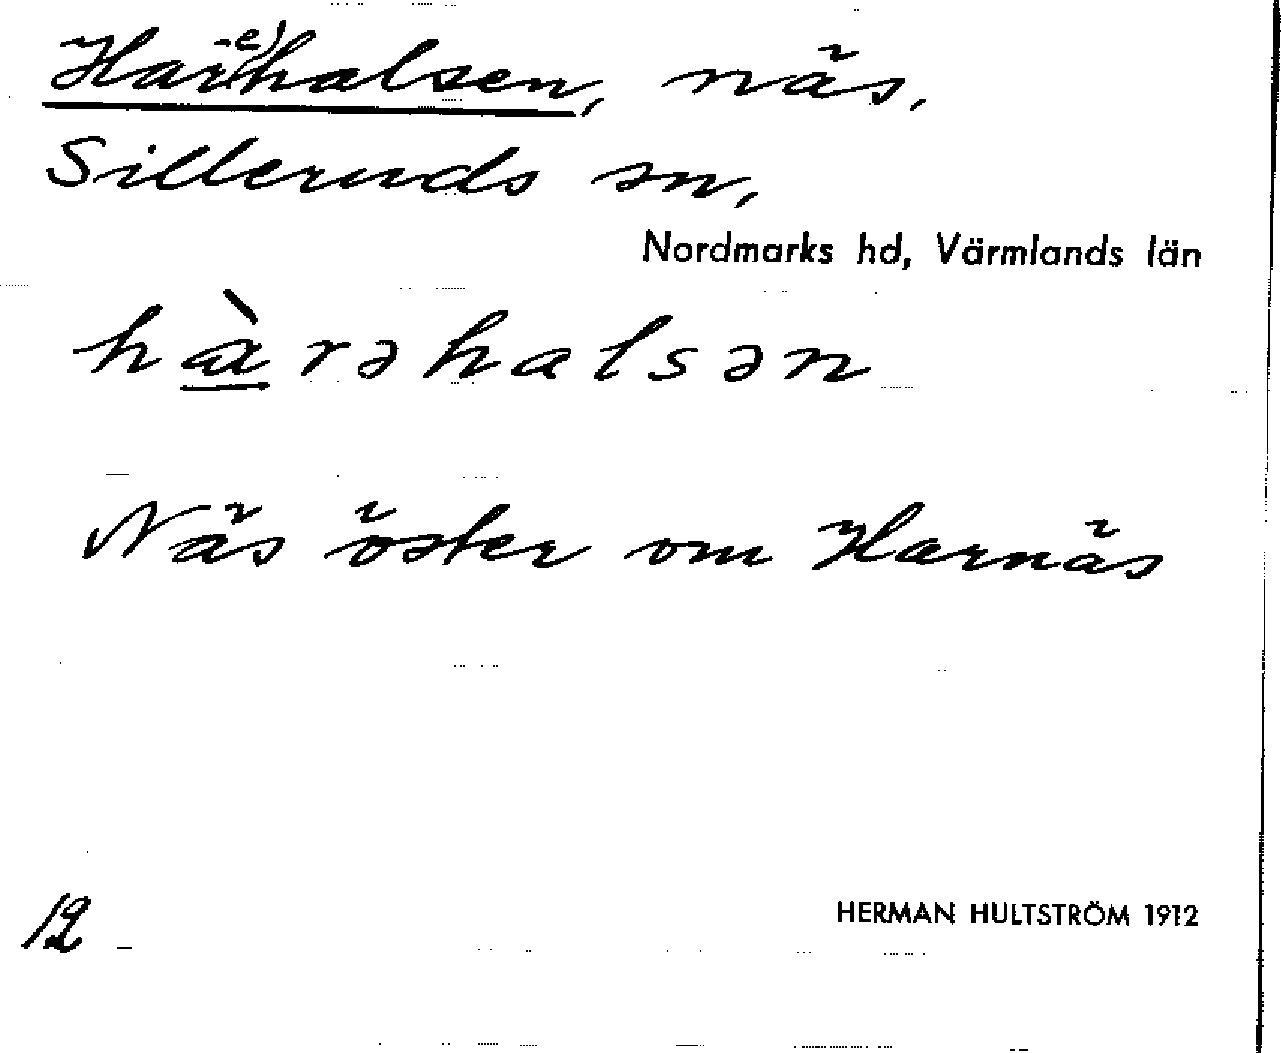 Har(-e)halsen, näs,
Silleruds sn,
Nordmarks hd, Värmlands län
hàrəhalsən
Näs öster om Harnäs
12
HERMAN HULTSTRÖM 1912